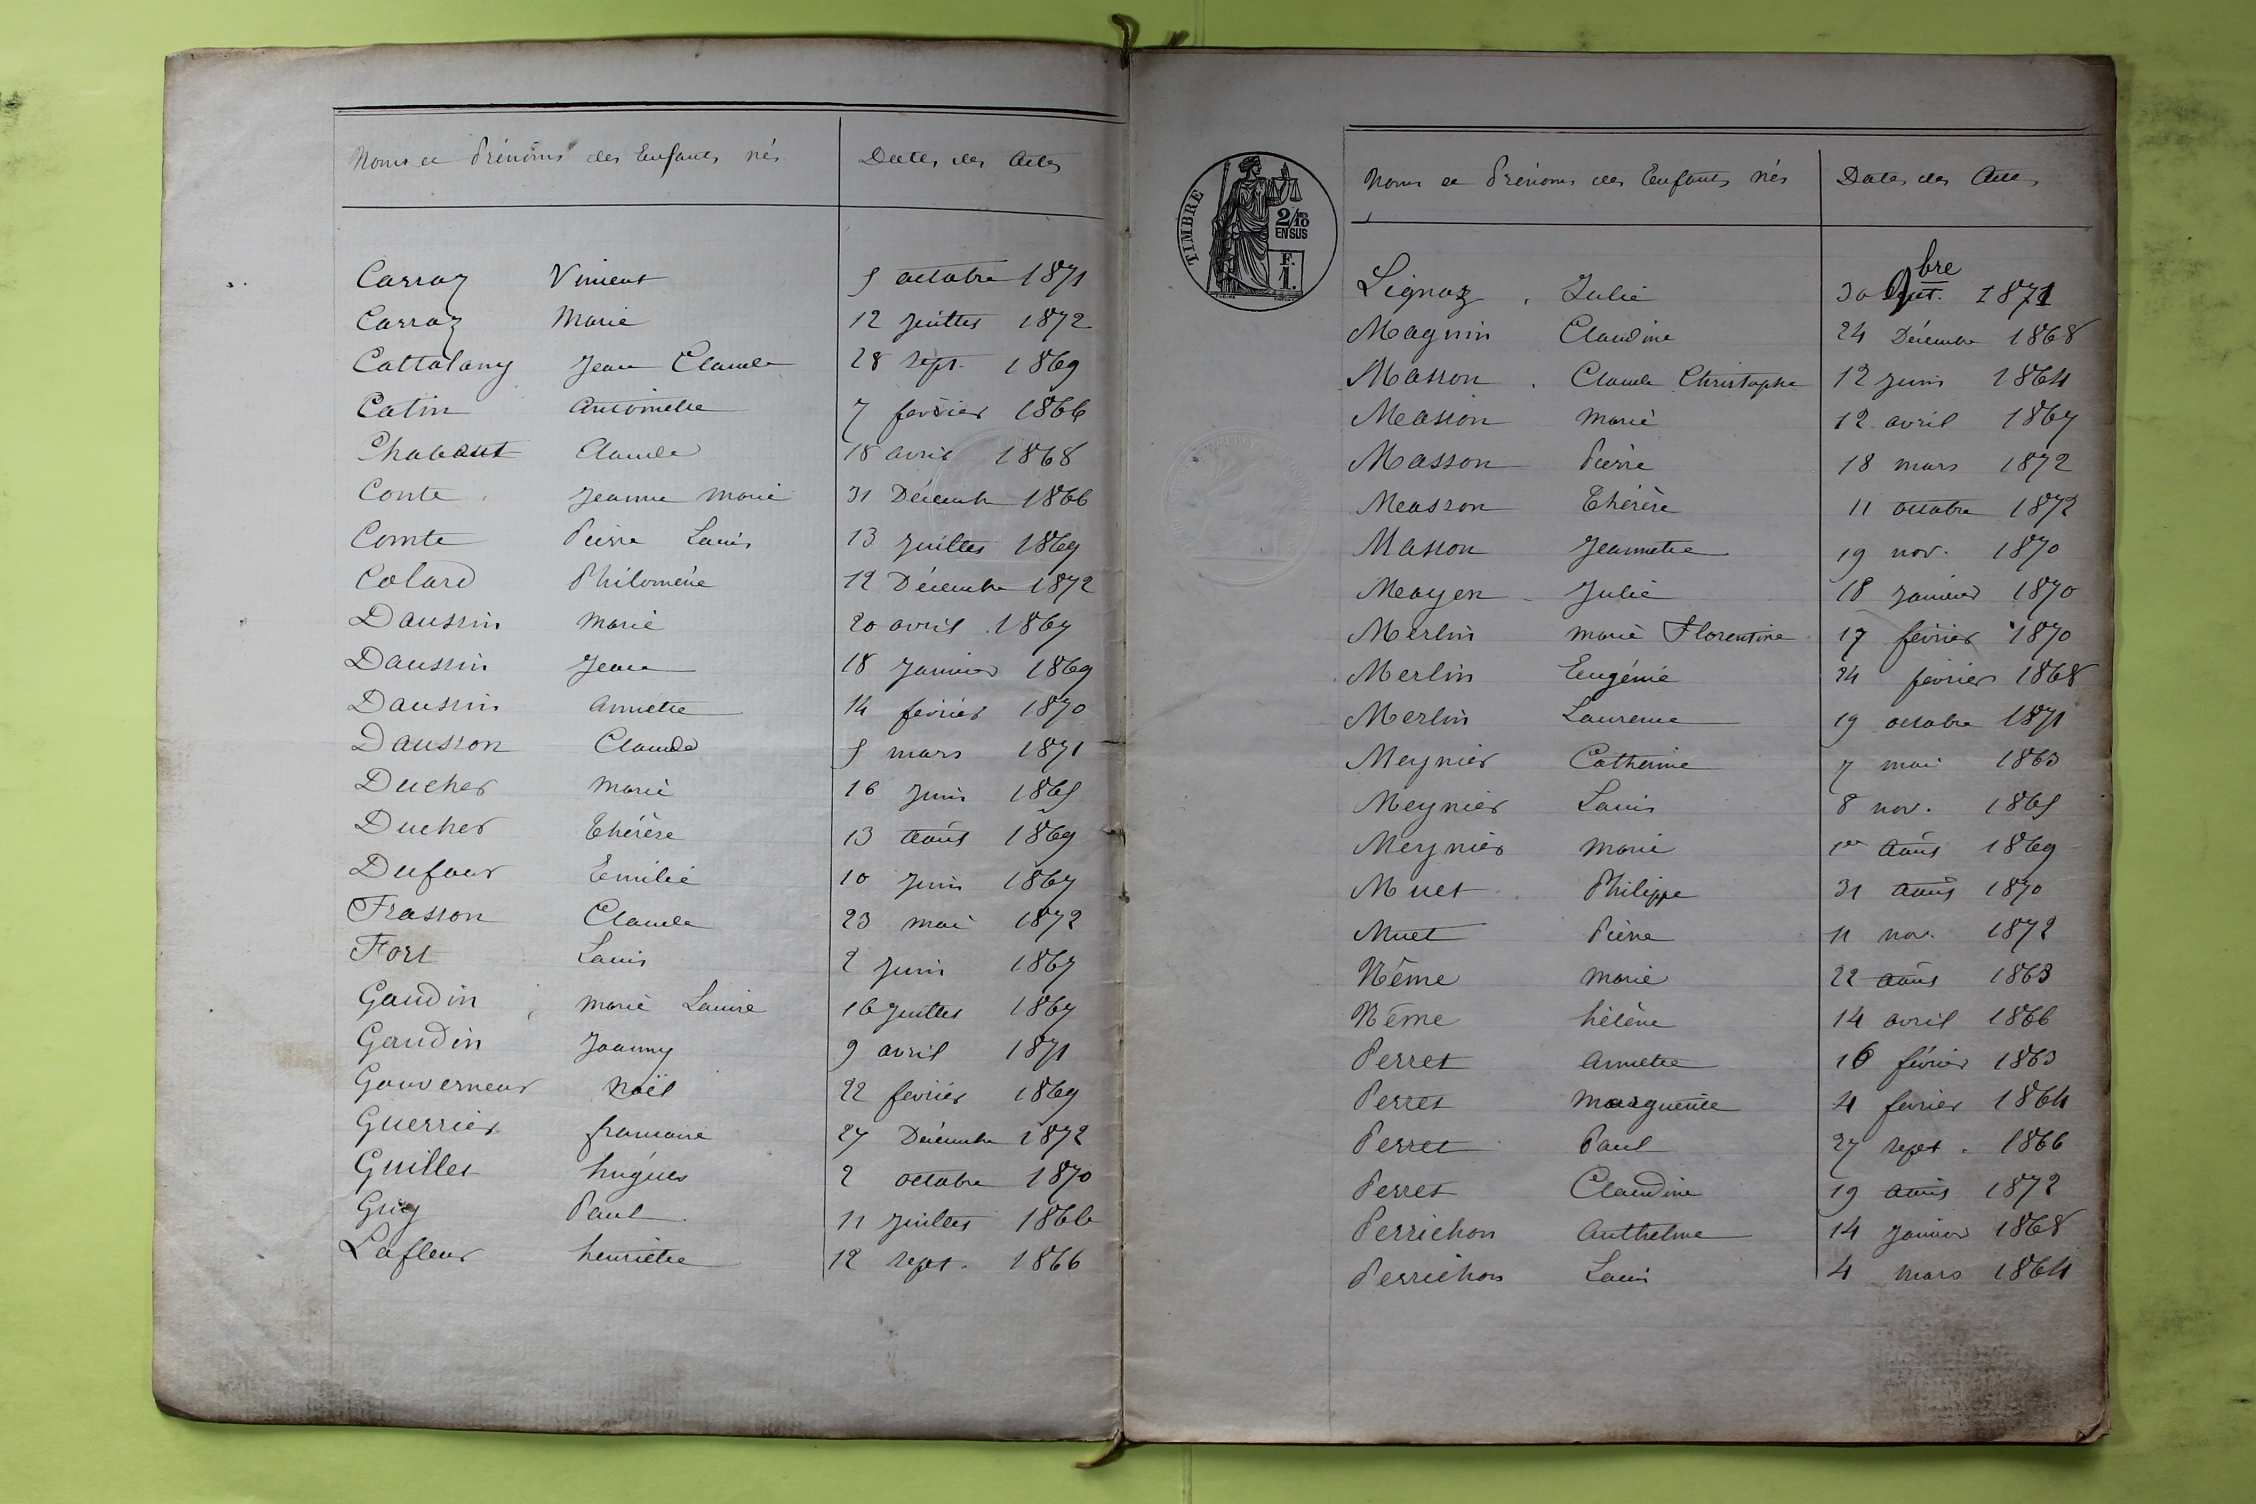 Noms et Prénoms des Enfants nés Dates des Actes
Carraz Vincent 5 octobre 1871
Carraz Marie 12 juillet 1872
Cattalany Jean Claude 28 sept. 1869
Catin Antoinette 7 fevrier 1866
Chabout Claude 18 avril 1868
Conte Jeanne Marie 31 Décembre 1866
Comte Pierre Louis 13 juillet 1869
Colard Philomène 12 Décembre 1872
Daussin Marie 20 avril 1867
Daussin Jean 18 Janvier 1869
Daussin Annette 14 février 1870
Dausson Claude 5 mars 1871
Ducher Marie 16 Juin 1865
Ducher Thérèse 13 août 1869
Dufour Emilie 10 Juin 1867
Frasson Claude 23 mai 1872
Fort Louis 2 juin 1867
Gaudin Marie Louise 16 juillet 1867
Gaudin Joanny 9 avril 1871
Gouverneur Noël 22 février 1869
Guerrier françoise 27 Décembre 1872
Guillet hugues 2 octobre 1870
Guy Paul 11 Juillet 1866
Lafleur henriette 12 sept. 1866
TIMBRE
2/10
EN SUS
F.
1.
Noms et Prénoms des Enfants nés Dates des Actes
Lignaz Julie 30 bre 1871
Magnin Claudine 24 Décembre 1868
Masson Claude Christophe 12 juin 1864
Masson Marie 12 avril 1867
Masson Pierre 18 mars 1872
Masson Thérèse 11 octobre 1872
Masson Jeannette 19 nov. 1870
Mayen Julie 18 Janvier 1870
Merlin Marie Florentine 17 février 1870
Merlin Eugénie 24 février 1868
Merlin Laurence 19 octobre 1871
Meynier Catherine 7 mai 1863
Meynier Louis 8 nov. 1865
Meynier Marie 1er août 1869
Muet Philippe 31 août 1870
Muet Pierre 11 nov. 1872
Nême Marie 22 août 1863
Nême hélène 14 avril 1866
Perret Annette 16 février 1863
Perret Marguerite 4 février 1864
Perret Paul 27 sept. 1866
Perret Claudine 19 août 1872
Perrichon Anthelme 14 Janvier 1868
Perrichon Louis 4 mars 1864